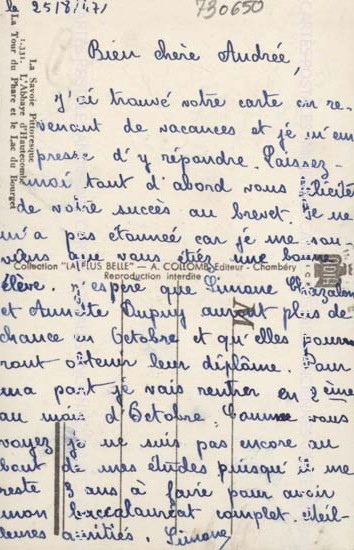 le 25/8/47
730650
Bien chère Andrée,
J'ai trouvé votre carte en re-
venant de vacances et je m'em
presse d'y répondre. Laissez-
moi tout d'abord vous féliciter
de votre succès au brevet. Je ne
m'a pas étonnée car je me sou
viens que vous étiez une bonne
élève. J'espère que Simone
et Annette Dupuy auront plus de
chance en Octobre et qu'elles pourr
ront obtenir leur diplôme. Pour
ma part je vais rentrer en 2ème
au mois d'Octobre. Comme vous
voyez je ne suis pas encore au
bout de mes études puisqu'il me
reste 3 ans à faire pour avoir
mon baccalauréat complet. Meil-
leures amitiés. Simone
La Savoie Pittoresque
1.331. L'Abbaye d'Hautecombe
La Tour du Phare et le Lac du Bourget
Collection "LA PLUS BELLE" — A. COLLOMB, Editeur - Chambéry
Reproduction interdite
M